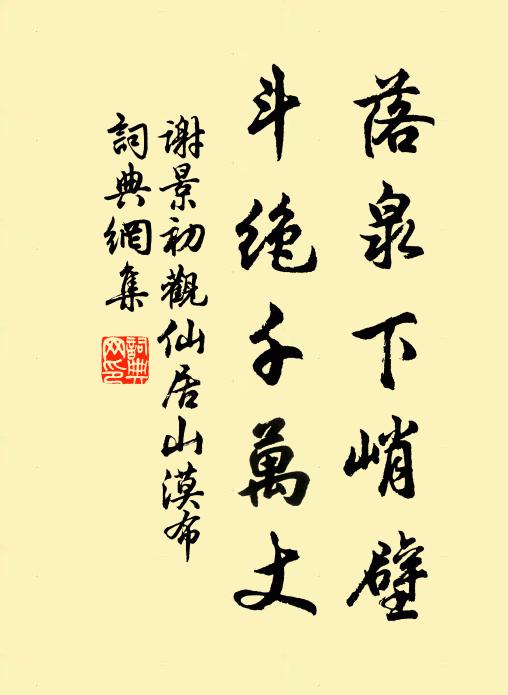 落泉下峭壁
斗绝千萬丈
谢景初觀仙居山漠布
詞典網集
詞典
网印